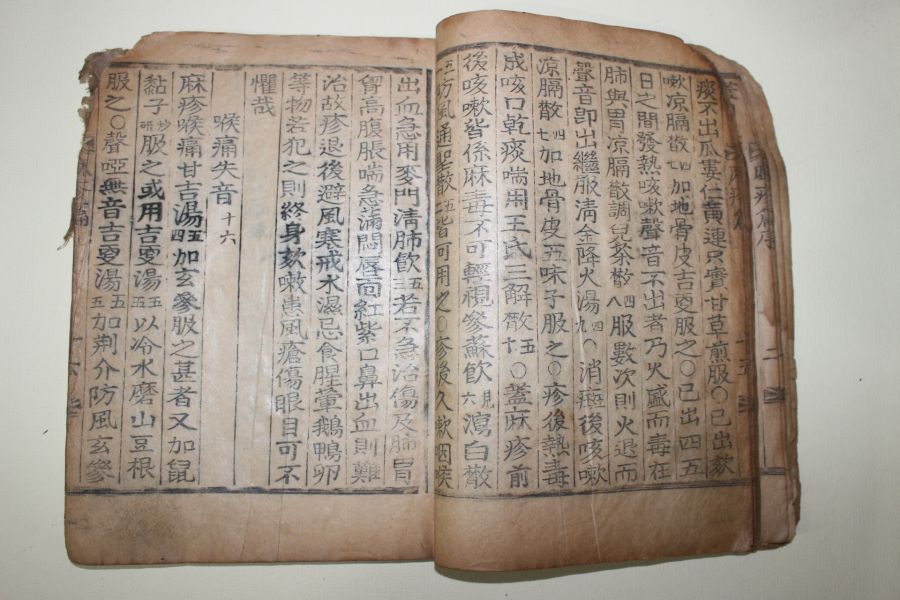 痰不出瓜蔞仁黃連只實甘草煎服〇已出欬
嗽凉膈散四七加地骨皮吉更服之〇已出四五
日之間發熱咳嗽聲音不出者乃火盛而毒在
肺與胃凉膈散調兒茶散四八服數次則火退而
聲音卽出繼服淸金降火湯四九〇消癍後咳嗽
凉膈散四七加地骨皮五味子服之〇疹後熱毒
成咳口乾痰喘用王氏三解散五十〇蓋麻疹前
後咳嗽皆係麻毒不可輕視參蘇飮見六瀉白散
防風通聖散五皆可用之〇疹後久嗽咽喉
出血急用麥門淸肺飮五三若不急治傷及肺胃
胷高腹脹喘急滿悶唇面紅紫口鼻出血則難
治故疹退後避風寒戒水濕忌食腥葷鵝鴨卵
等物若犯之則終身欬嗽患風瘡傷眼目可不
懼哉
喉痛失音十六
麻疹喉痛甘吉湯五四加玄參服之甚者又加鼠
黏子炒研服之或用吉更湯五五以冷水磨山豆根
服之〇聲啞無音吉更湯五五加荆介防風玄參